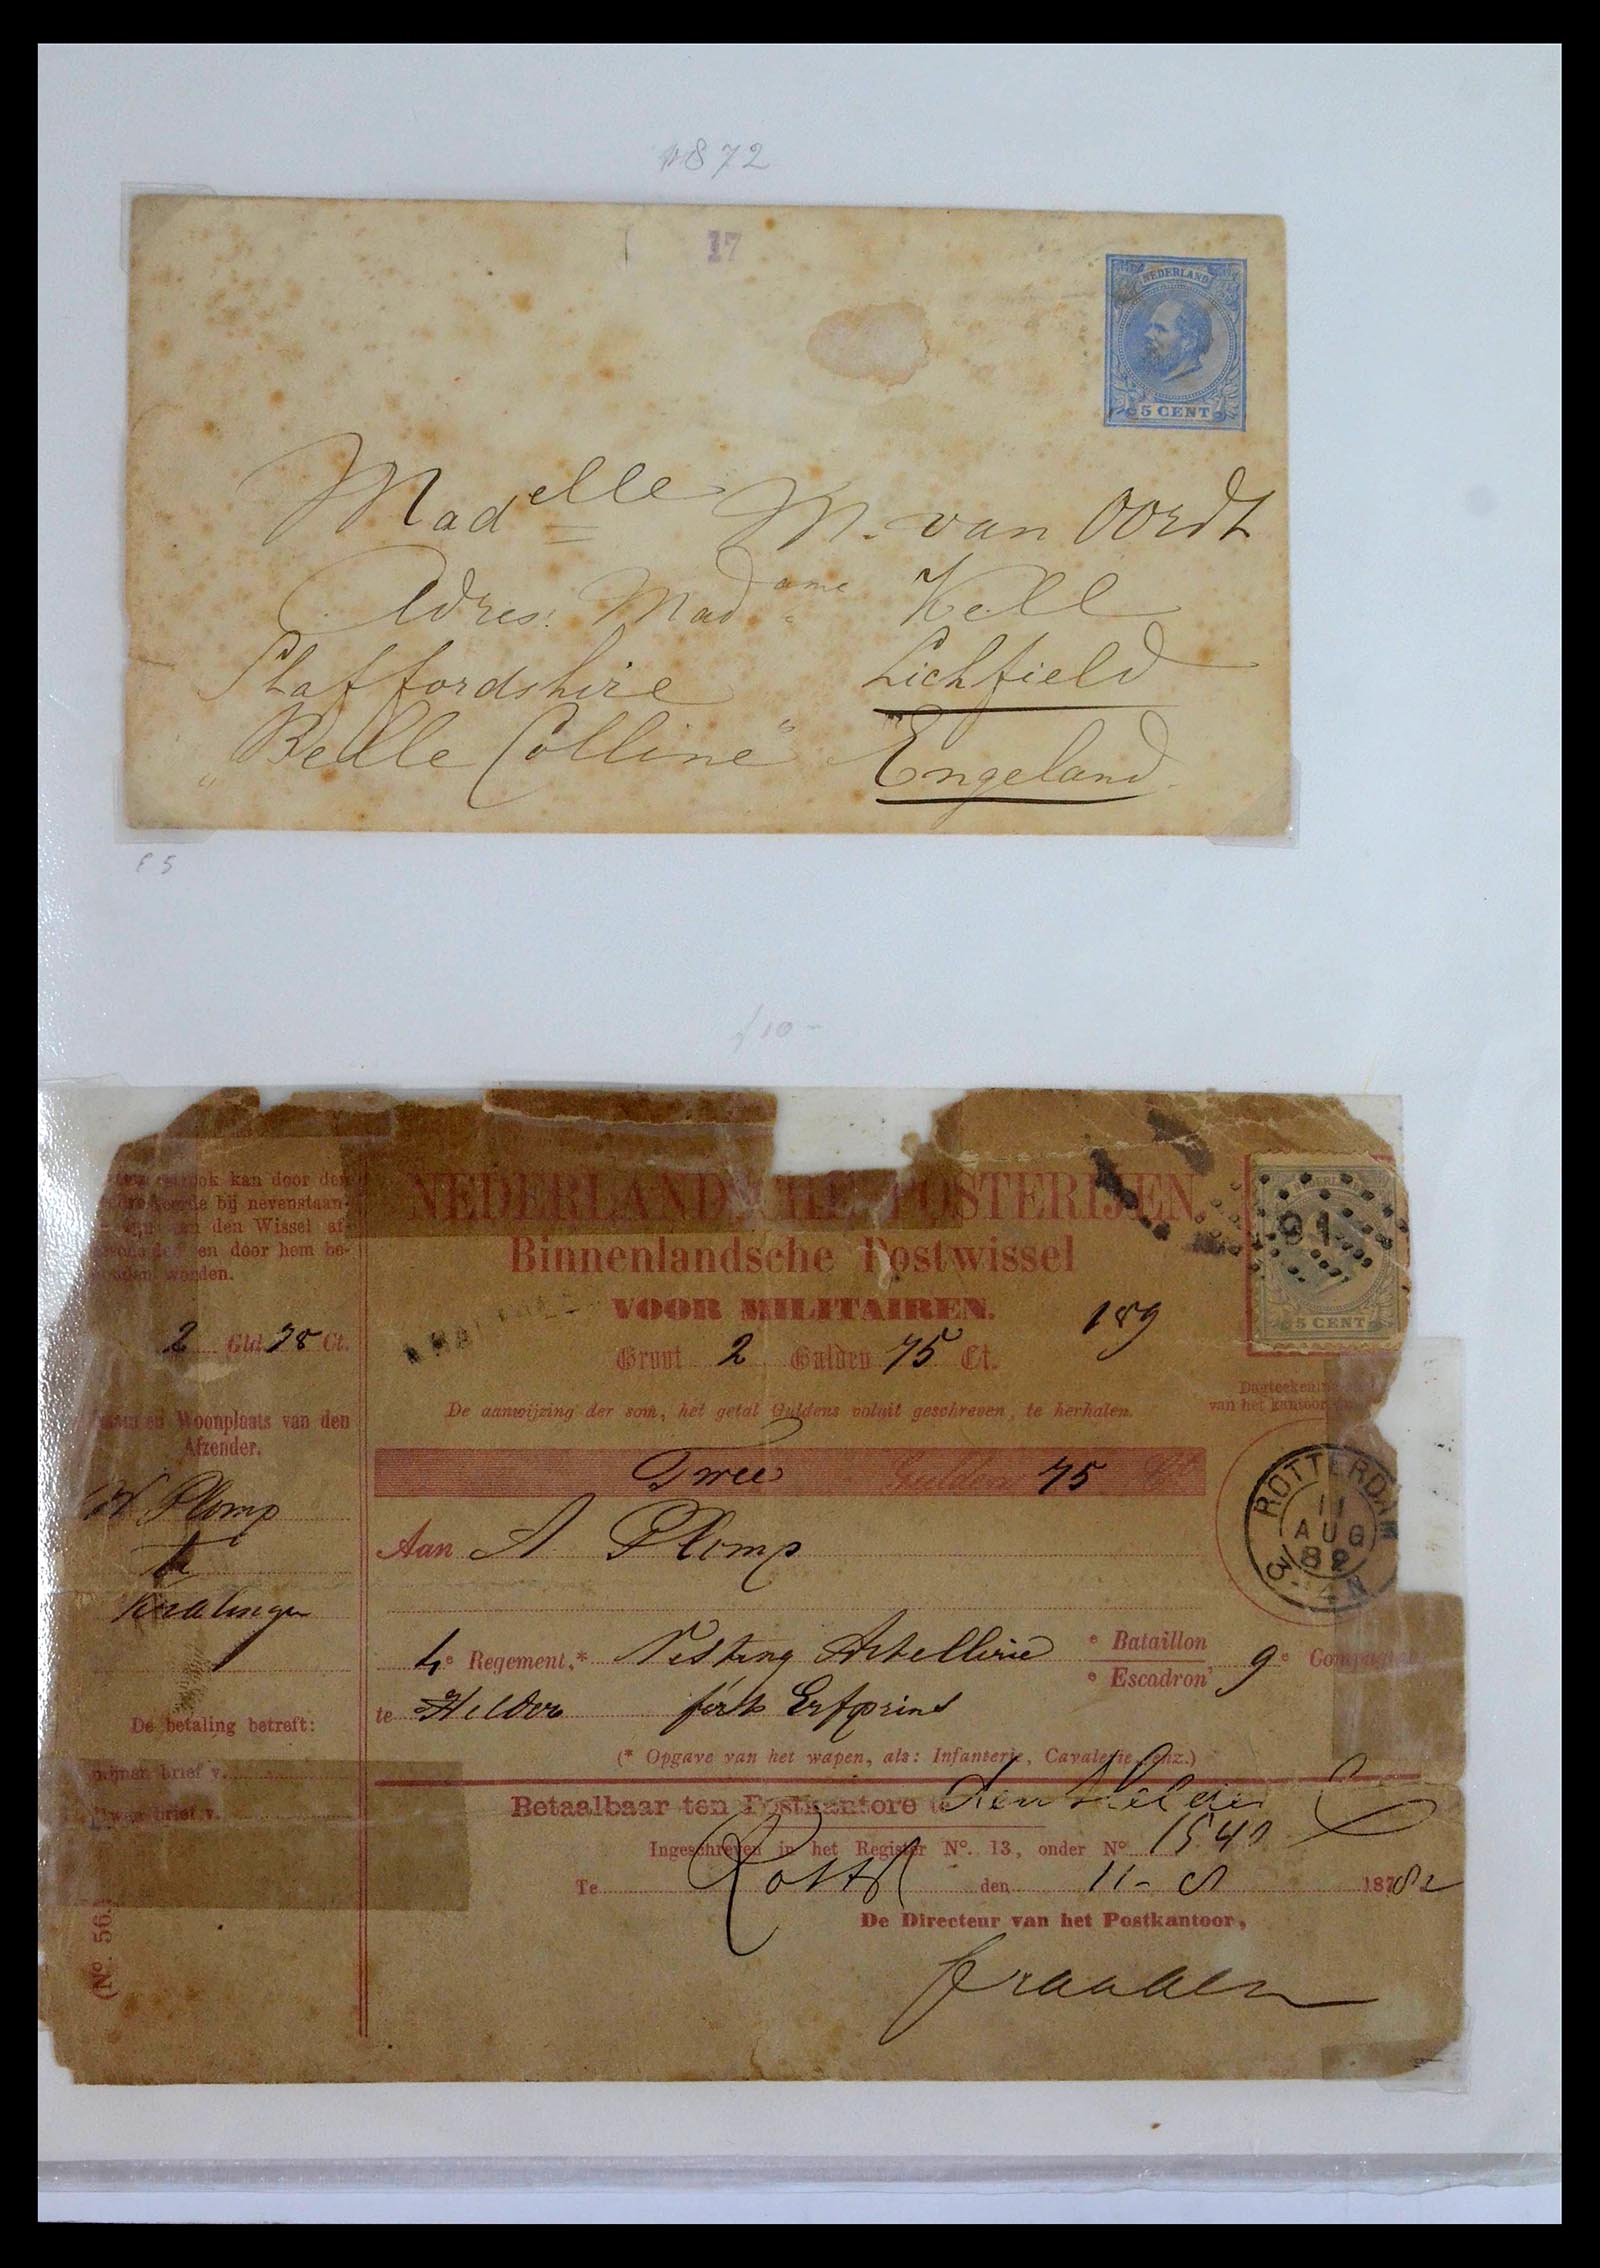 1872
17
NEDERLAND
5 CENT
Madelle M. van Oordt
Adres: Madame Kell
Staffordshire Lichfield
"Belle Colline" Engeland
E 5
f 10-
ook kan door den
bij nevenstaan-
den Wissel af-
en door hem be-
worden.
2 Gld. 75 Ct.
en Woonplaats van den
Afzender.
W Plomp
te
Kralingen
De betaling betreft:
mijnen brief v.
Uwen brief v.
(No. 56.)
NEDERLANDSCHE POSTERIJEN.
Binnenlandsche Postwissel
VOOR MILITAIREN.
189
Groot 2 Gulden 75 Ct.
De aanwijzing der som, het getal Guldens voluit geschreven, te herhalen.
Twee Gulden 75 Ct.
Aan A Plomp
4e Regement,* Vesting Artellerie e Bataillon
e Escadron, 9e Compagnie
te Helder fort Erfprins
(* Opgave van het wapen, als: Infanterie, Cavalerie, enz.)
Betaalbaar ten Postkantore te den Helder
Ingeschreven in het Register No. 13, onder No. 1540
Te Rott den 11-8 18782
De Directeur van het Postkantoor,
91
5 CENT
Dagteekening
van het kantoor
ROTTERDAM
11
AUG
82
3-4N